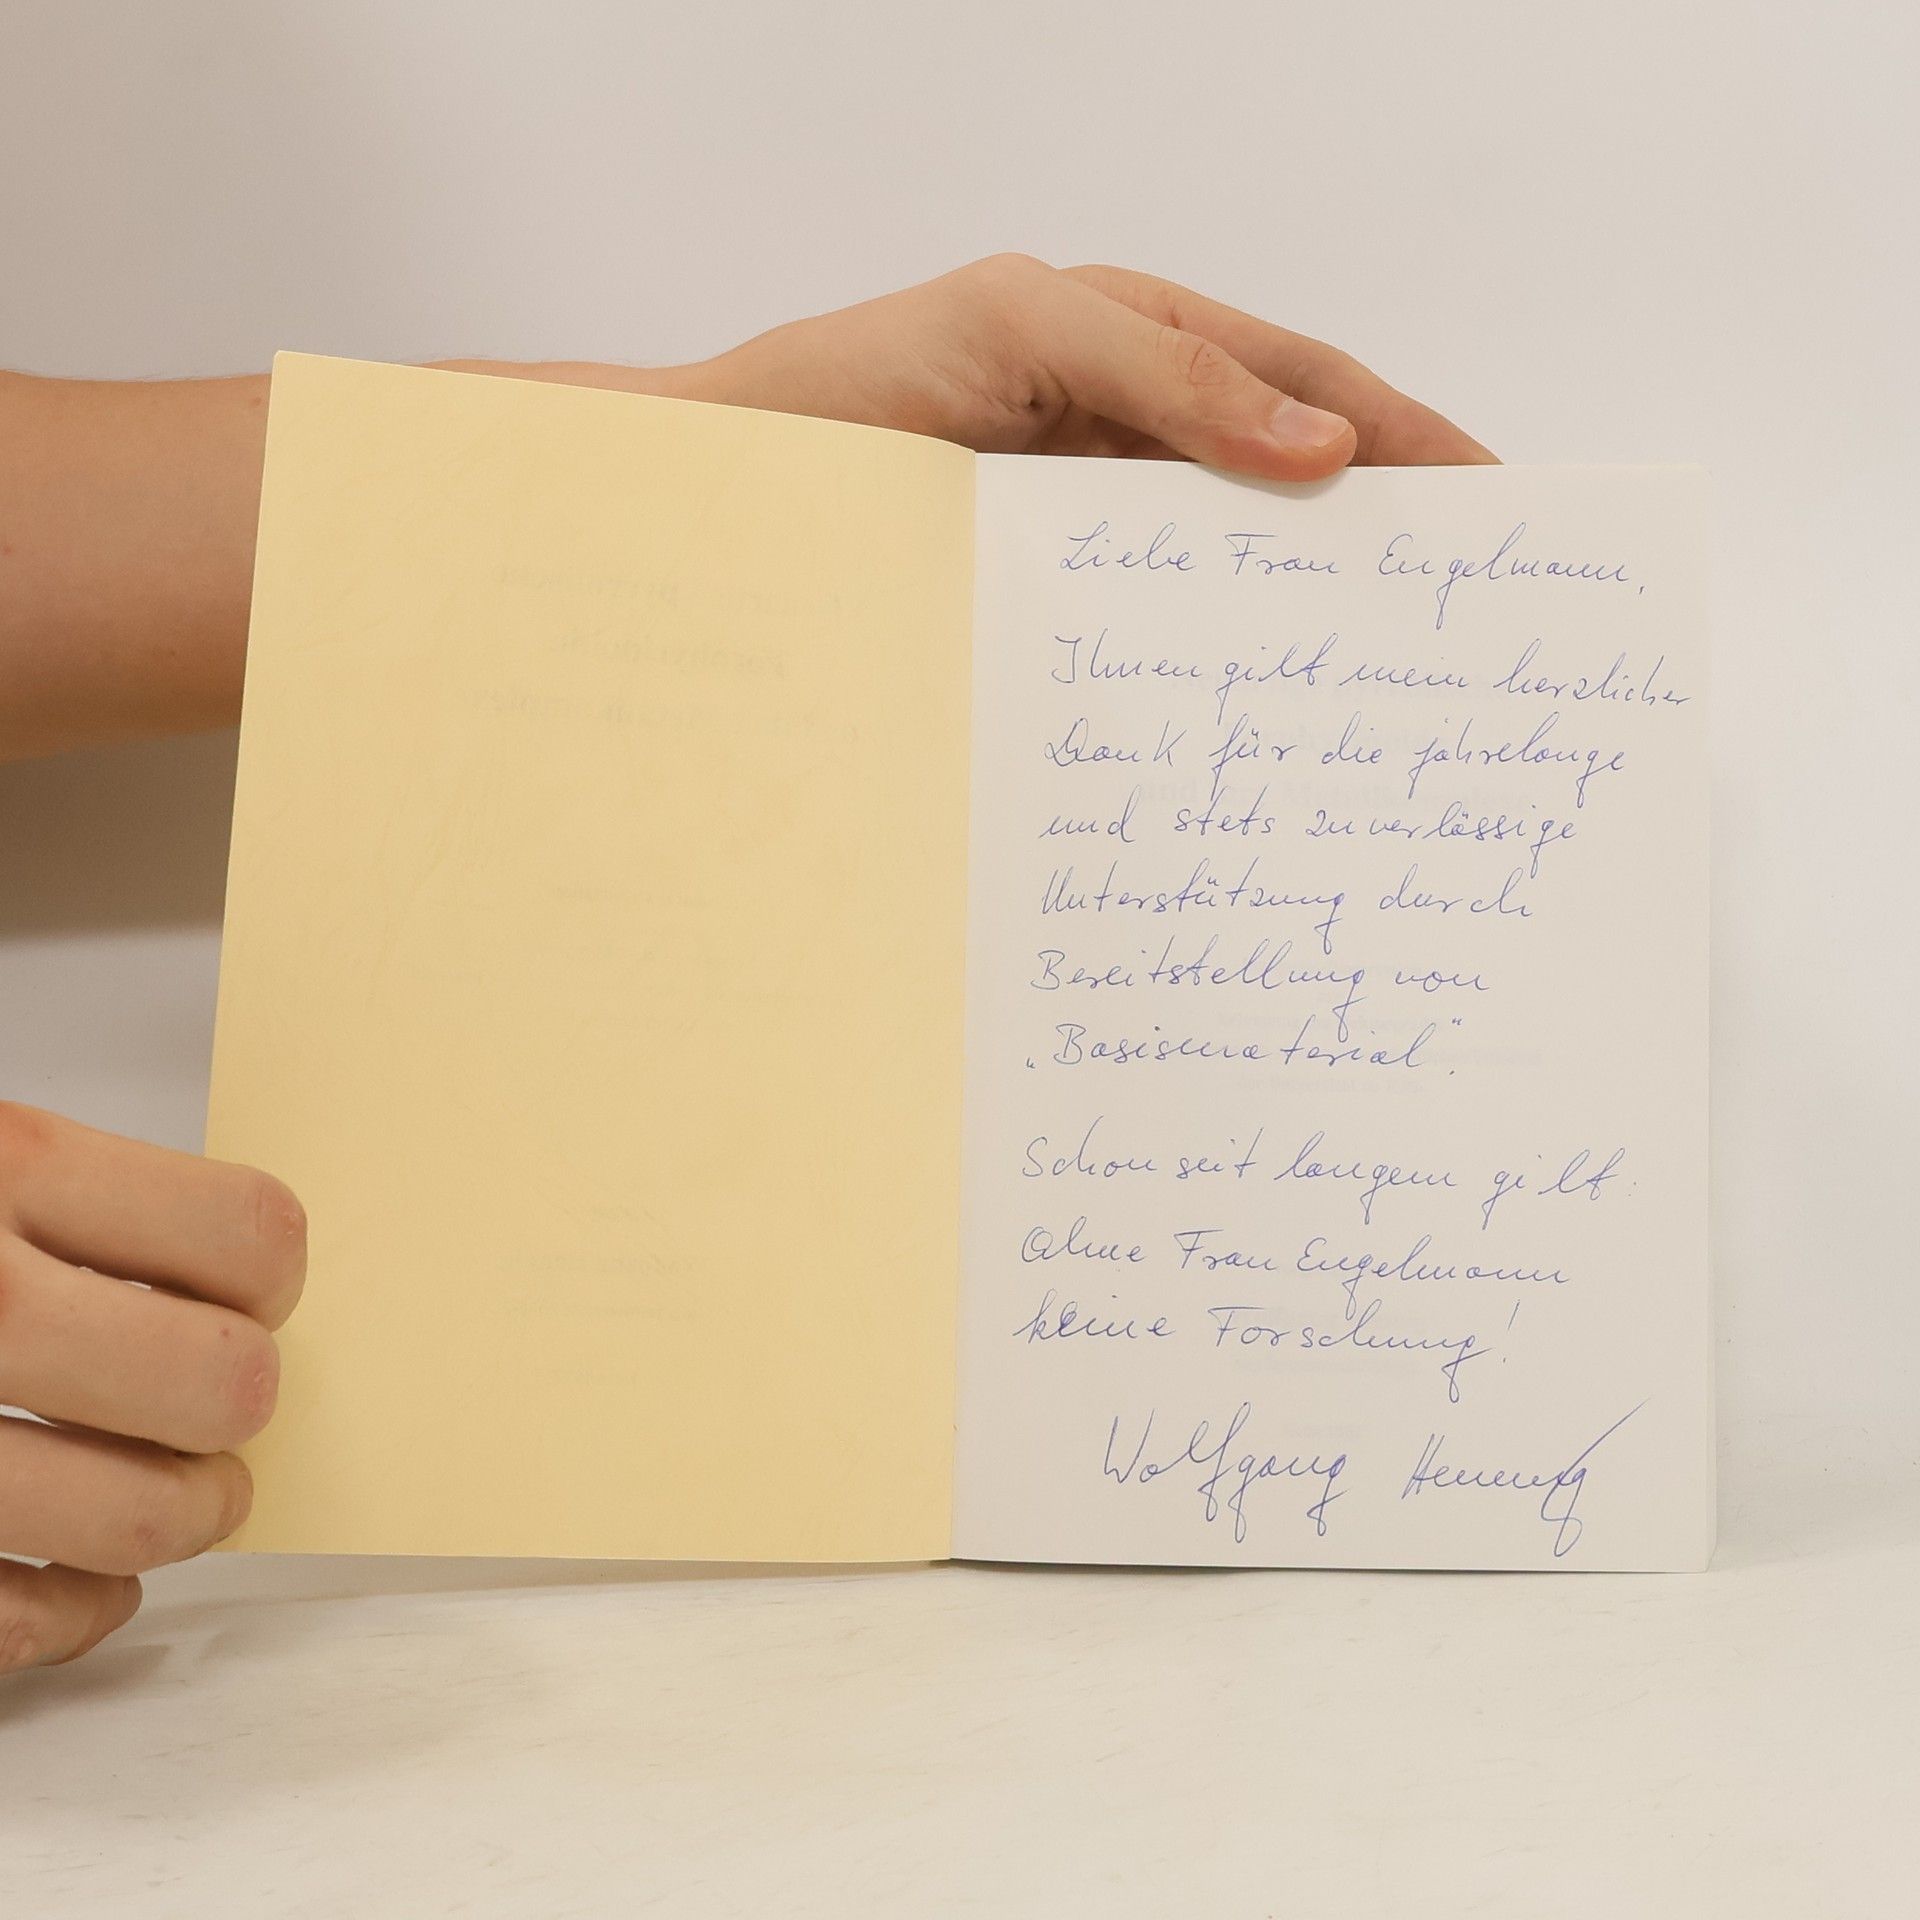 Liebe Frau Engelmann,
Ihnen gilt mein herzlicher
Dank für die jahrelange
und stets zuverlässige
Unterstützung durch
Bereitstellung von
„Basismaterial“.
Schon seit langem gilt:
Ohne Frau Engelmann
keine Forschung!
Wolfgang Hennig